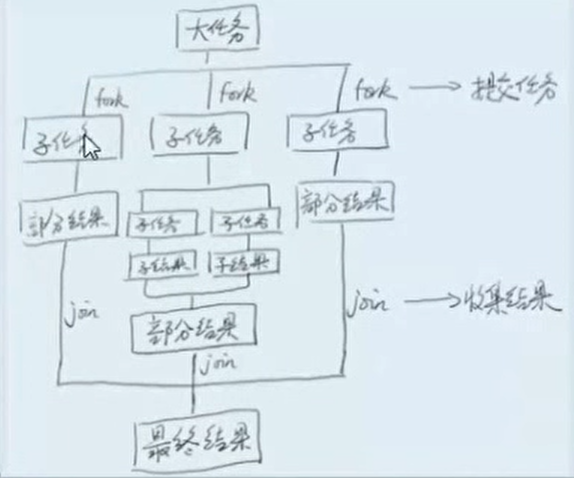 大任务
fork fork fork → 提交任务
子任务 子任务 子任务
部分结果 子任务 子任务 部分结果
子结果 子结果
join join → 收集结果
部分结果
join
最终结果